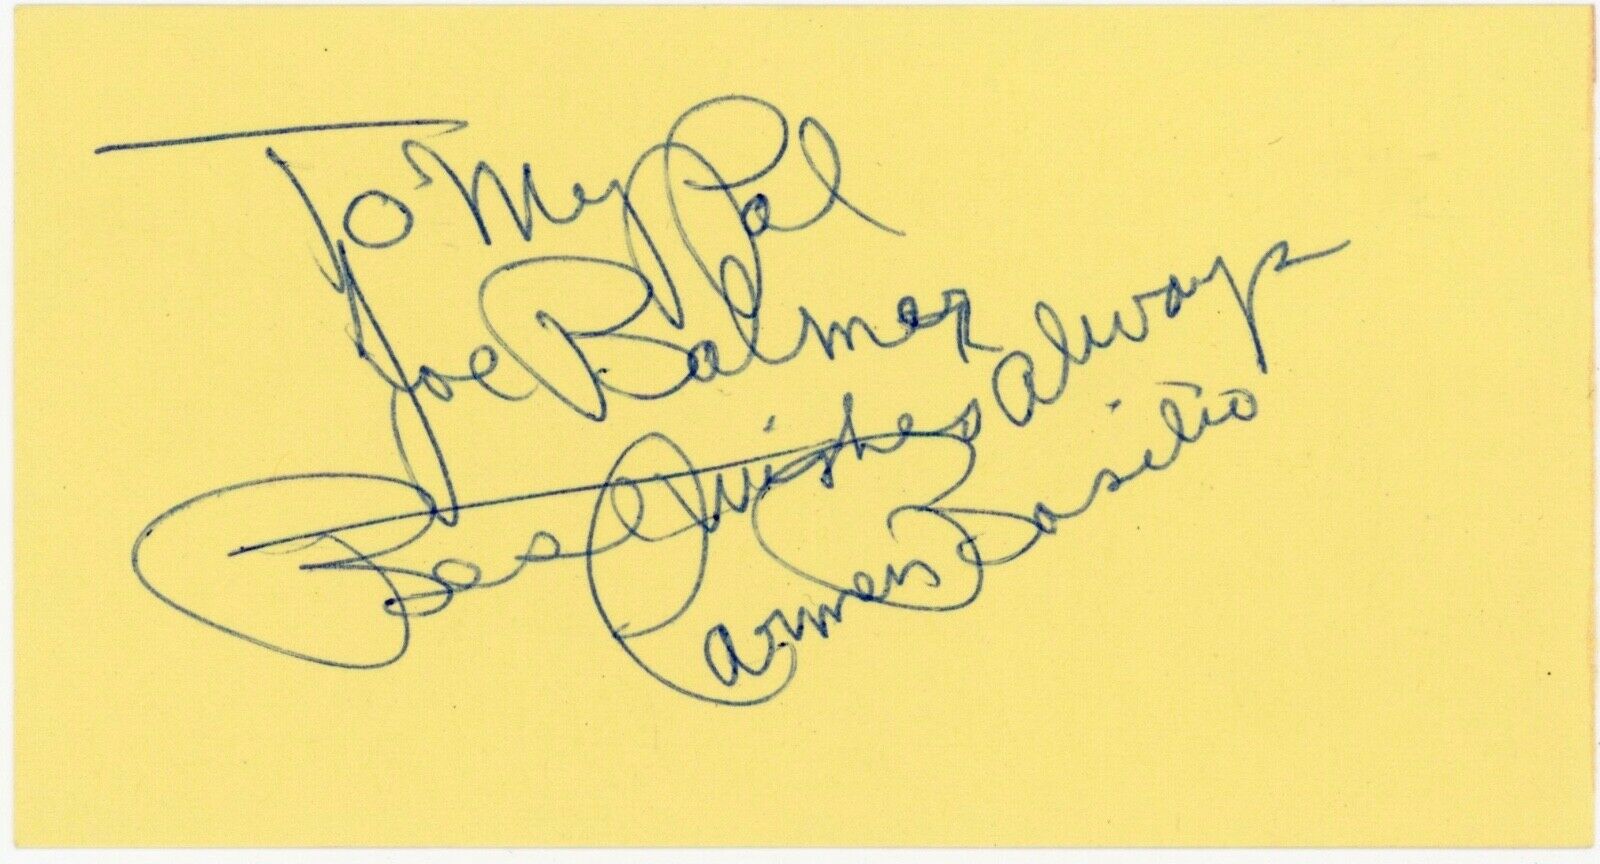 To My Pal
Joe Balmer
Best Wishes Always
Carmen Basilio